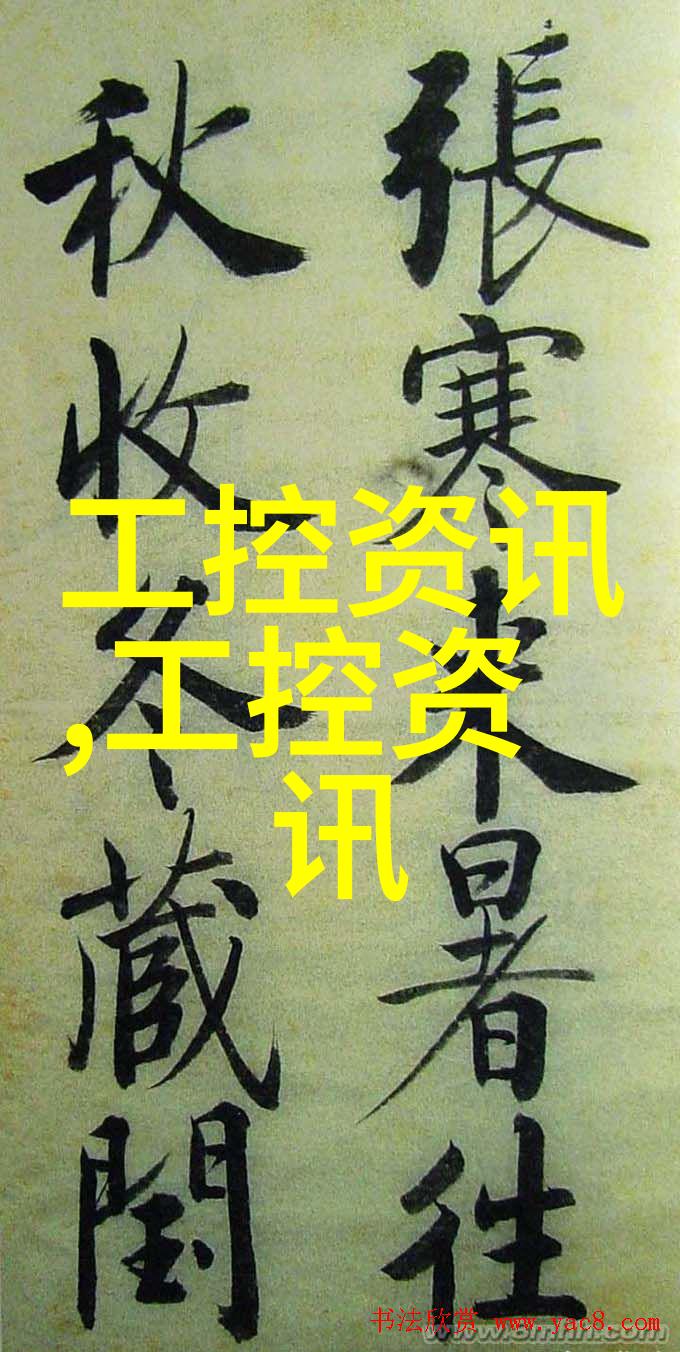 張寒来暑往
秋收冬蔵閏
工控资讯
,工控资
讯
书法欣赏 www.yac8.com